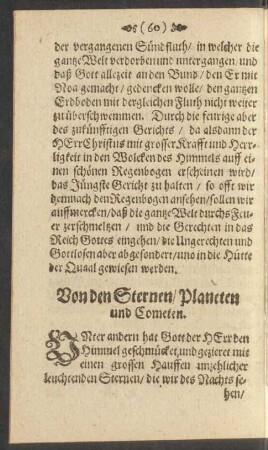 (60)
der vergangenen Sündfluth / in welcher die
gantze Welt verdorben und untergangen, und
daß Gott allezeit an den Bund / den Er mit
Noa gemacht / gedencken wolle / den gantzen
Erdboden mit dergleichen Fluth nicht weiter
zu überschwemmen. Durch die feurige aber
des zukünfftigen Gerichts / da alsdann der
HErr Christus mit grosser Krafft und Herr-
ligkeit in den Wolcken des Himmels auff ei-
nen schönen Regenbogen erscheinen wird /
das Jüngste Gericht zu halten / so offt wir
demnach den Regenbogen ansehen / sollen wir
auffmercken / daß die gantze Welt durchs Feu-
er zerschmeltzen / und die Gerechten in das
Reich Gottes eingehen / die Ungerechten und
Gottlosen aber abgesondert / und in die Hütte
der Quaal gewiesen werden.
Von den Sternen / Planeten
und Cometen.
UNter andern hat Gott der HErr den
Himmel geschmücket, und gezieret mit
einen grossen Hauffen unzehlicher
leuchtenden Sternen / die wir des Nachts se-
hen /